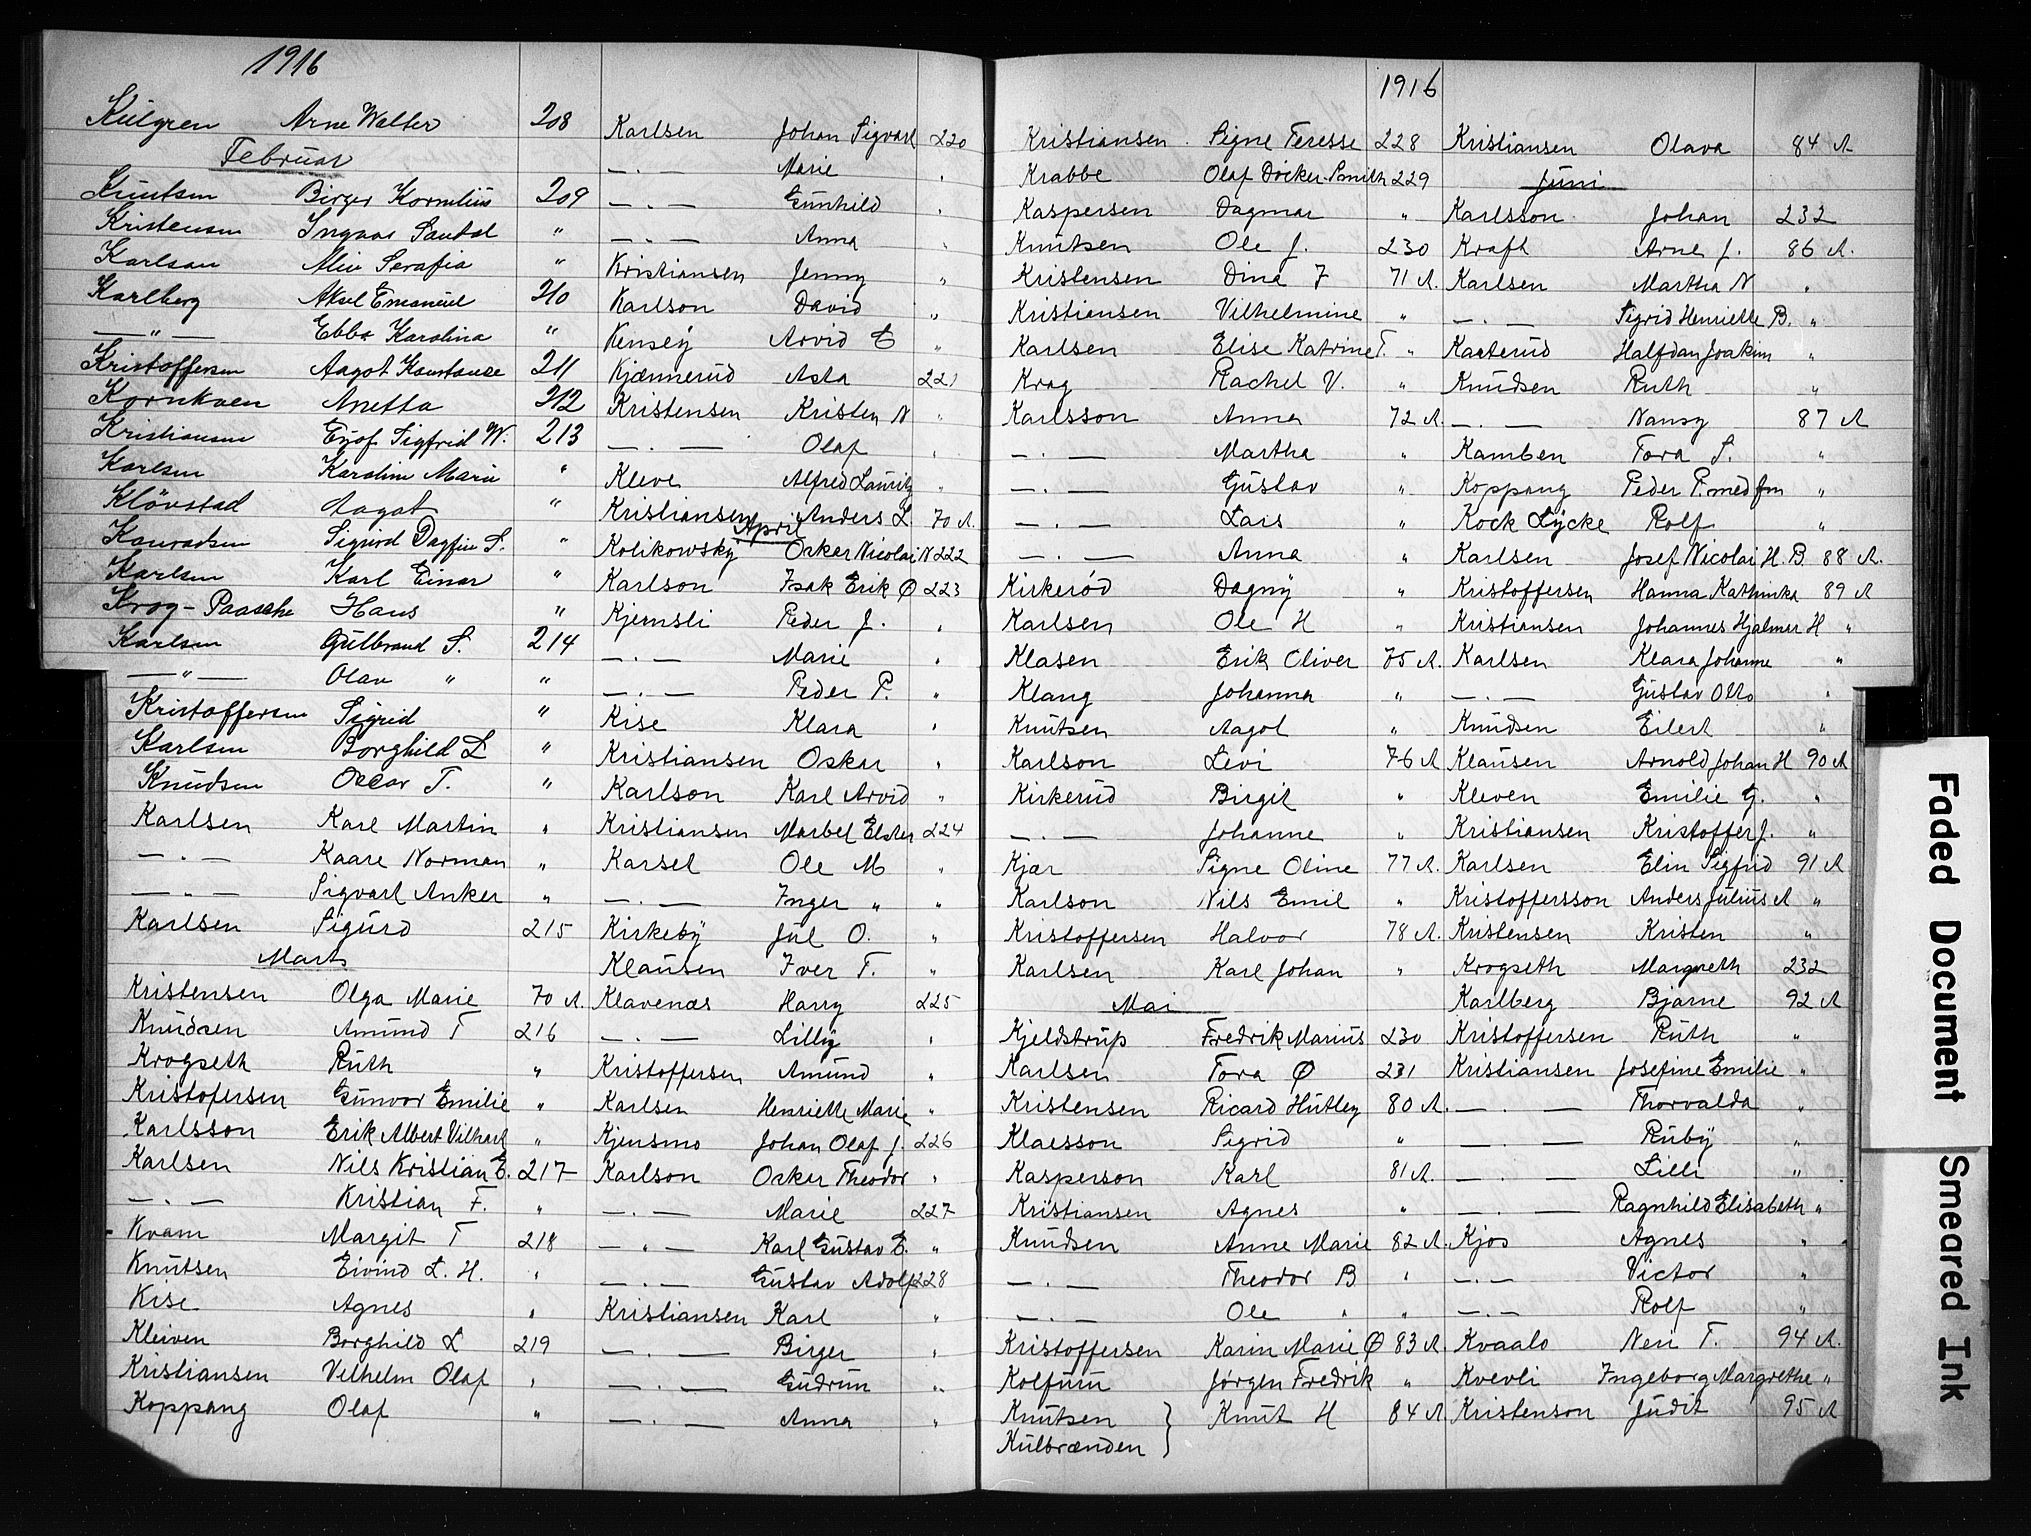 1916
Külgren Arne Walter 208
Februar
Knutsen Birger Kornelius 209
Kristensen Ingvar Sandal "
Karlson Aliv Serafia "
Karlberg Aksel Emanuel 210
—"— Ebba Karolina "
Kristoffersen Aagot Konstanse 211
Kornkven Anetta 212
Kristiansen Ejof Sigfrid W. 213
Karlsen Karoline Marie "
Klövstad Aagot "
Konradsen Sigurd Dagfin S. "
Karlsen Karl Einar "
Krog-Paasche Hans "
Karlsen Gulbrand S. 214
—"— Olav " "
Kristoffersen Sigrid "
Karlsen Borghild L "
Knudsen Oscar T. "
Karlsen Karl Martin "
—"— Kaare Norman "
—"— Sigvart Anker "
Karlsen Sigurd 215
Marts
Kristensen Olga Marie 70 A
Knudsen Amund T 216
Krogseth Ruth "
Kristofersen Gunvor Emilie "
Karlsson Erik Albert Vilhart "
Karlsen Nils Kristian E. 217
—"— Kristian F. "
Kvam Margit T 218
Knutsen Eivind L. H. "
Kise Agnes "
Kleiven Borghild L 219
Kristiansen Vilhelm Olaf "
Koppang Olaf "
Karlsen Johan Sigvart 220
—"— Marie "
—"— Gunhild "
—"— Anna "
Kristiansen Jenny "
Karlson David "
Kensey Arvid E "
Kjænnerud Asta 221
Kristensen Kristen N "
—"— Olaf "
Kleve Alfred Lauritz "
Kristiansen Anders L. 70 A.
April
Kolikowsky Oskar Nicolai N 222
Karlson Isak Erik Ø 223
Kjernsli Peder J. "
—"— Marie "
—"— Peder P. "
Kise Klara "
Kristiansen Oskar "
Karlson Karl Arvid "
Kristiansen Marbel Ester 224
Karsel Ole M "
—"— Inger " "
Kirkeby Jul O. "
Klausen Iver T. "
Klavenæs Harry 225
—"— Lilly "
Kristoffersen Amund "
Karlsen Henriette Marie "
Kjensmo Johan Olaf J. 226
Karlson Oskar Theodor "
—"— Marie 227
—"— Karl Gustav E. "
—"— Gustav Adolf 228
Kristiansen Karl "
—"— Birger "
—"— Gudrun "
—"— Anna "
1916
Kristiansen Signe Teresse 228
Krabbe Olaf Döcker-Smith 229
Kaspersen Dagmar "
Knutsen Ole J. 230
Kristensen Dina F 71 A.
Kristiansen Vilhelmine "
Karlsen Elise Katrine T. "
Krag Rachel V. "
Karlsson Anna 72 A.
—"— Martha "
—"— Gustav "
—"— Lars "
—"— Anna "
Kirkerød Dagny "
Karlsen Ole H "
Klasen Erik Oliver 75 A.
Klang Johanna "
Knutsen Aagot "
Karlson Levi 76 A
Kirkerud Birgit "
—"— Johanne "
Kjær Signe Oline 77 A.
Karlson Nils Emil "
Kristoffersen Halvor 78 A.
Karlsen Karl Johan "
Mai
Kjeldstrup Fredrik Marius 230
Karlsen Tora Ø 231
Kristensen Ricard Hutley 80 A.
Klaesson Sigrid "
Kasperson Karl 81 A.
Kristiansen Agnes "
Knudsen Anne Marie 82 A.
—"— Theodor B "
—"— Ole " "
Kristoffersen Karin Marie Ø 83 A.
Kolfurn Jørgen Fredrik "
Knutsen } Knut H 84 A.
Kulbrænden }
Kristiansen Olava 84 A
Juni
Karlsson Johan 232
Kraft Arne J. 86 A.
Karlsen Martha N "
—"— Sigrid Henriette B. "
Kaaterud Halfdan Joakim "
Knudsen Ruth "
—"— Nansy 87 A
Kamben Tora S. "
Koppang Peder P. med fm "
Kock Lycke Rolf "
Karlsen Josef Nicolai H. B. 88 A.
Kristoffersen Hanna Kathinka 89 A
Kristiansen Johannes Hjalmar H "
Karlsen Klara Johanne "
—"— Gustav Otto "
Knudsen Eilert "
Klausen Arnold Johan H 90 A
Kleven Emilie G. "
Kristiansen Kristoffer J. "
Karlsen Elin Sigfrid 91 A
Kristoffersson Anders Julius A "
Kristensen Kristen "
Krogseth Margreth 232
Karlberg Bjarne 92 A
Kristoffersen Ruth "
Kristiansen Josefine Emilie "
—"— Thorvalda "
—"— Ruby "
—"— Lilli "
—"— Ragnhild Elisabeth "
Kjos Agnes "
—"— Victor "
—"— Rolf "
Kvaalo Neri T. 94 A.
Kvevli Ingeborg Margrethe "
Kristenson Judit 95 A
Faded Document Smeared Ink